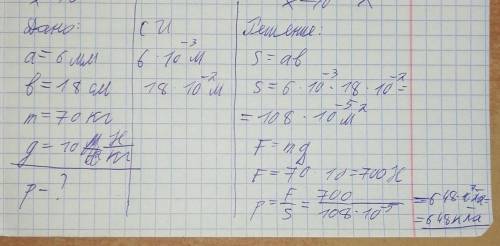 Дано:
СИ
Решение:
a=6 мм
6·10⁻³ м
S=ab
b=18 см
18·10⁻² м
S=6·10⁻³·18·10⁻²=
m=70 кг
=108·10⁻⁵ м²
g=10 Н/кг
F=mg
F=70·10=700 Н
p-?
p=F/S=700/108·10⁻⁵
=648·10³ Па=
=648 кПа